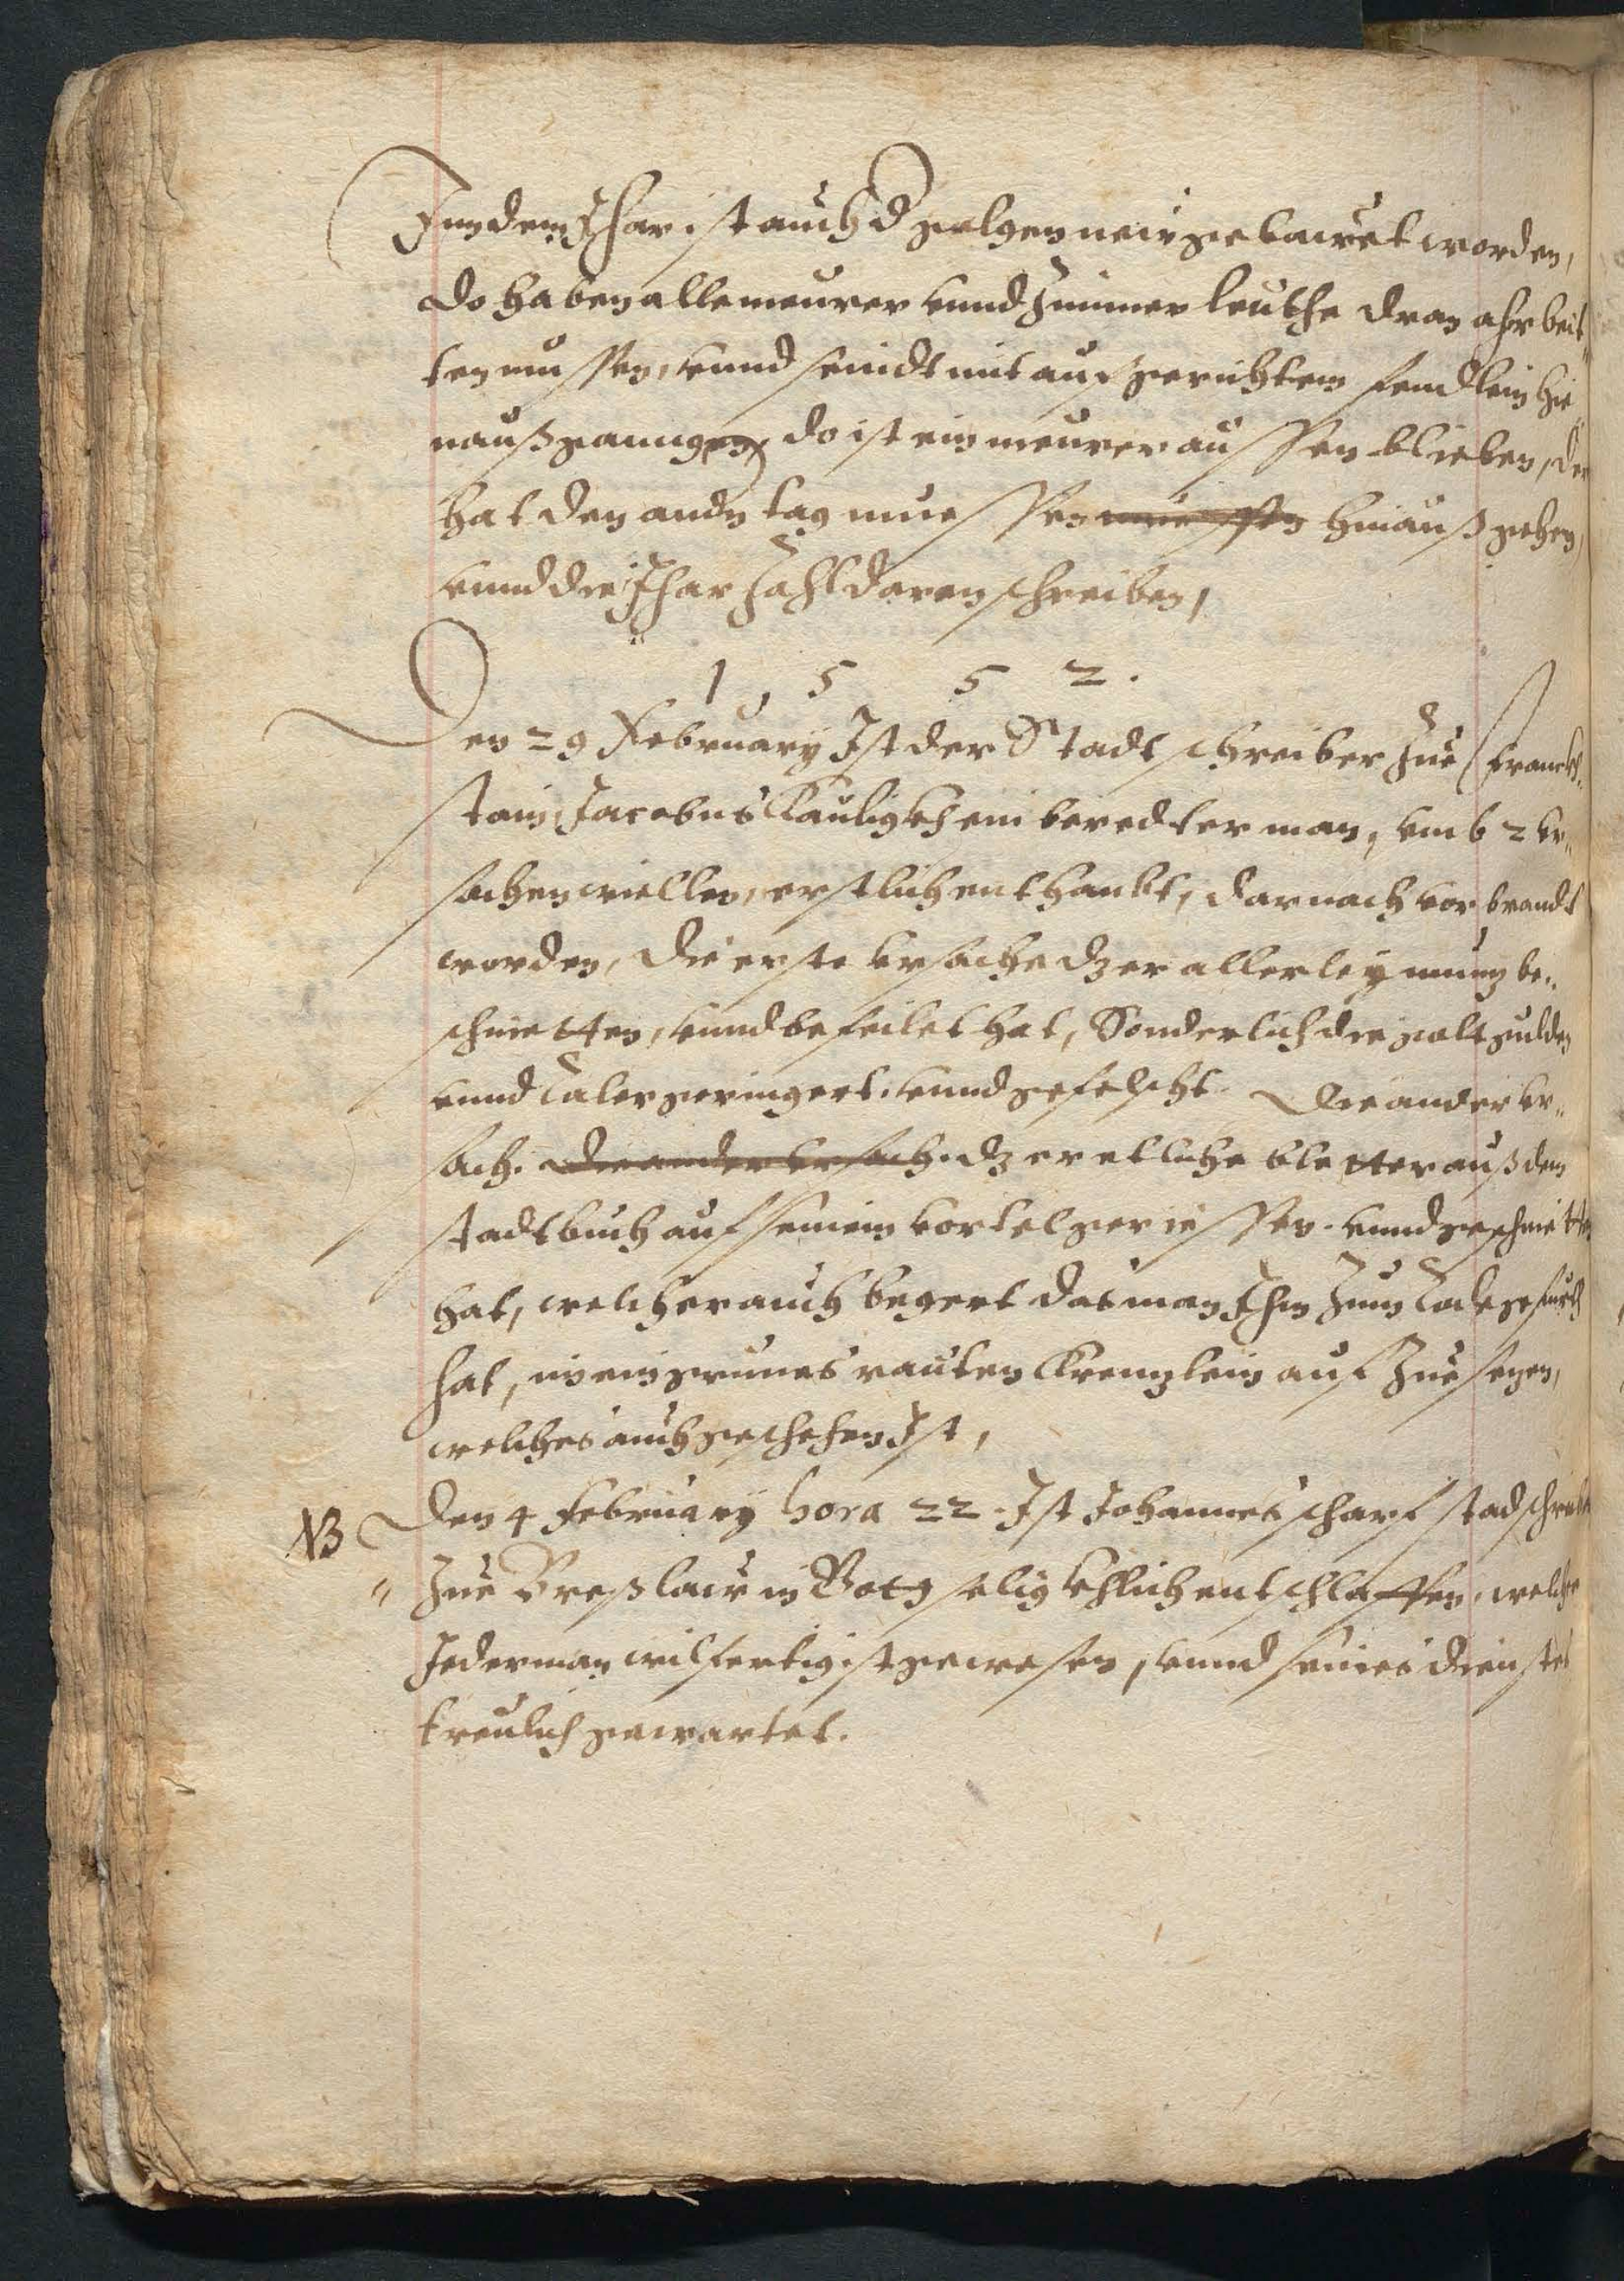 Inn dem Jhar ist auch d galgen neu gebauet worden,
do haben alle meurer vnnd Zimmer leuthe dran ahrbeit„
ten mussen, vnnd seindt mit aufgerichtem fendlein hie„
nauß gangen, do ist ein meurer aussen blieben, der
hat den andn tag muessen muessen hinauß gehen,
vnnd die Jhar Zahl daran schreiben,
1 5 5 2.
Den 29 February Ist der Stadtschreiber Zue Franck„
stain, Jacobus Kauligkh ein beredter man, vmb 2 vr„
sachen wiellen, erstlich enthaubt, darnach vorbrandt
worden, die erste vrsache dz er allerley muntz be„
schnietten, vnnd befeilet hat, Sonderlich die goltgulden
vnnd Taler geringert. vnnd gefelscht. Die ander vr„
sach. die ander vrsach. dz er etliche bletter auß dem
stadtbuch auf seinem vortel gerissen. vnnd geschnietten
hat, welcher auch begert das man Ihm Zum Tode gefurth
hat, im ein grunes rauten Krentzlein auf Zue setzen,
welches auch geschehen Ist,
NB Den 4 February hora 22 Ist Johannes scharf stadschreiber
" Zue Breßlaw in Gott seligkhlich entschlaffen, welcher
Jederman wilfertig ist gewesen, vnnd seines dienstes
treulich gewartet.